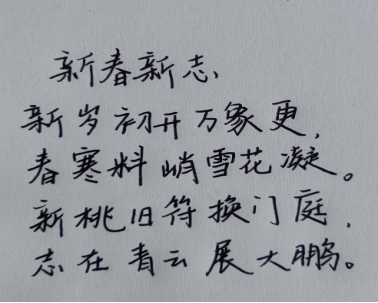 新春新志、
新岁初开万象更，
春寒料峭雪花凝。
新桃旧符换门庭，
志在青云展大鹏。